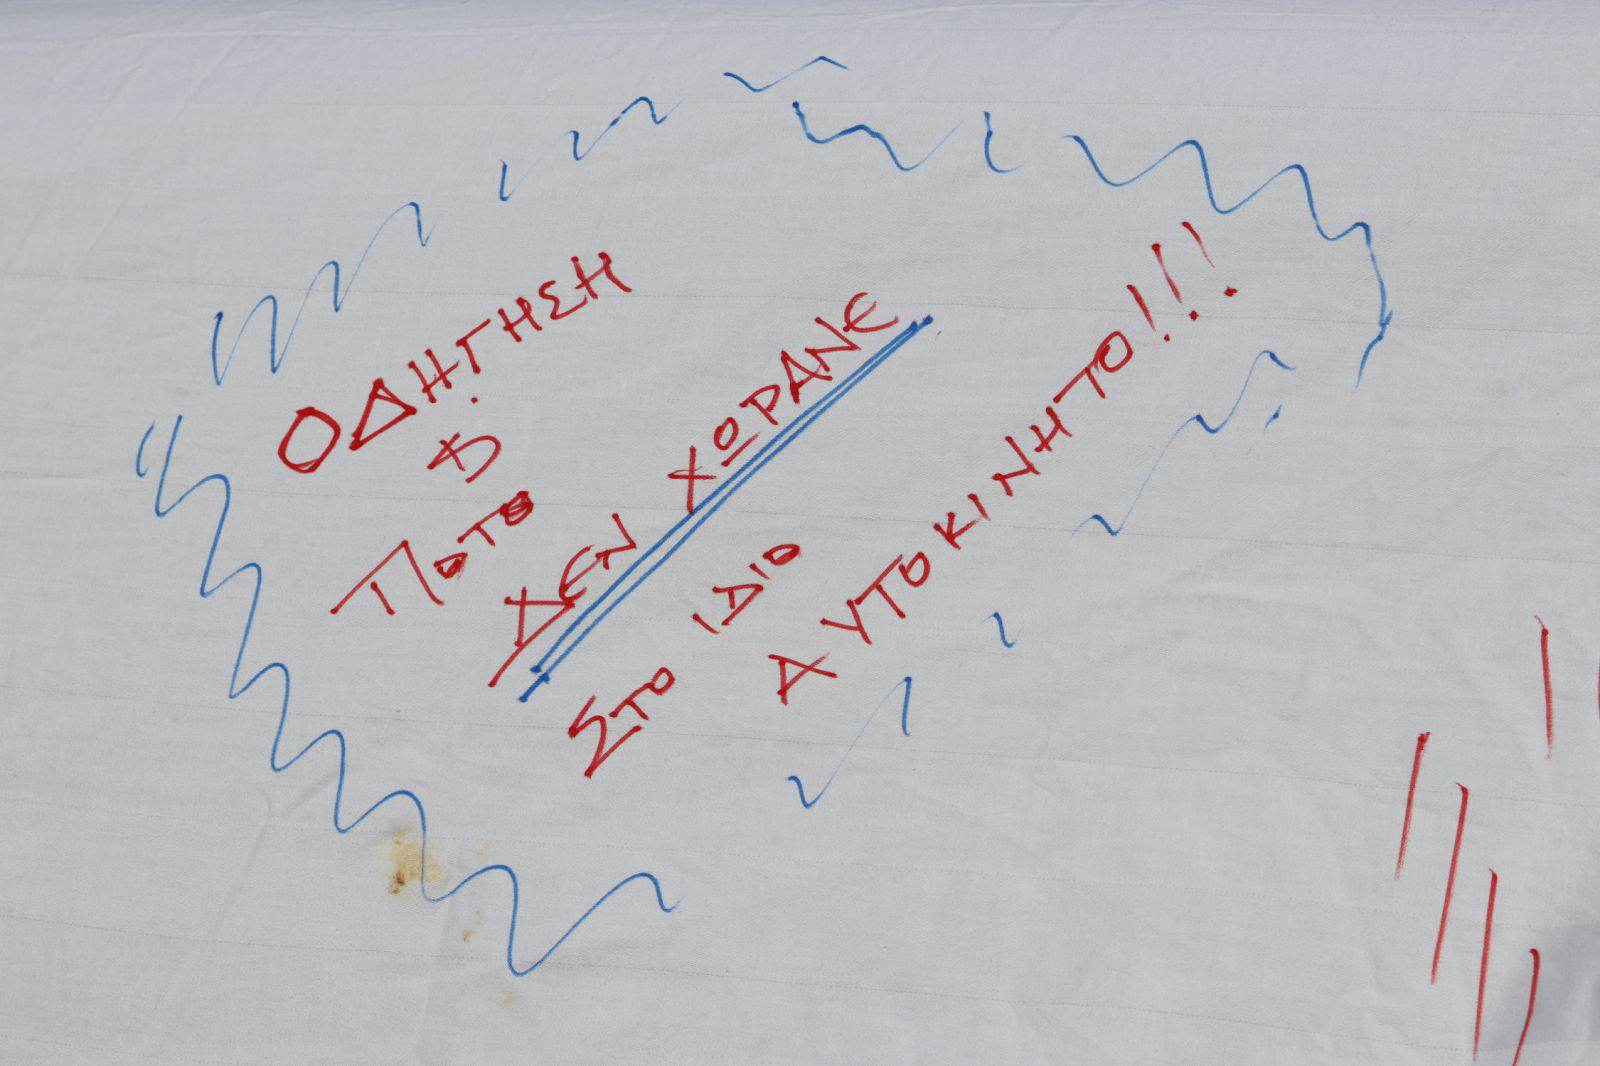 ΟΔΗΓΗΣΗ
&
ΠΟΤΟ
ΔΕΝ ΧΩΡΑΝΕ
ΣΤΟ ΙΔΙΟ
ΑΥΤΟΚΙΝΗΤΟ!!!